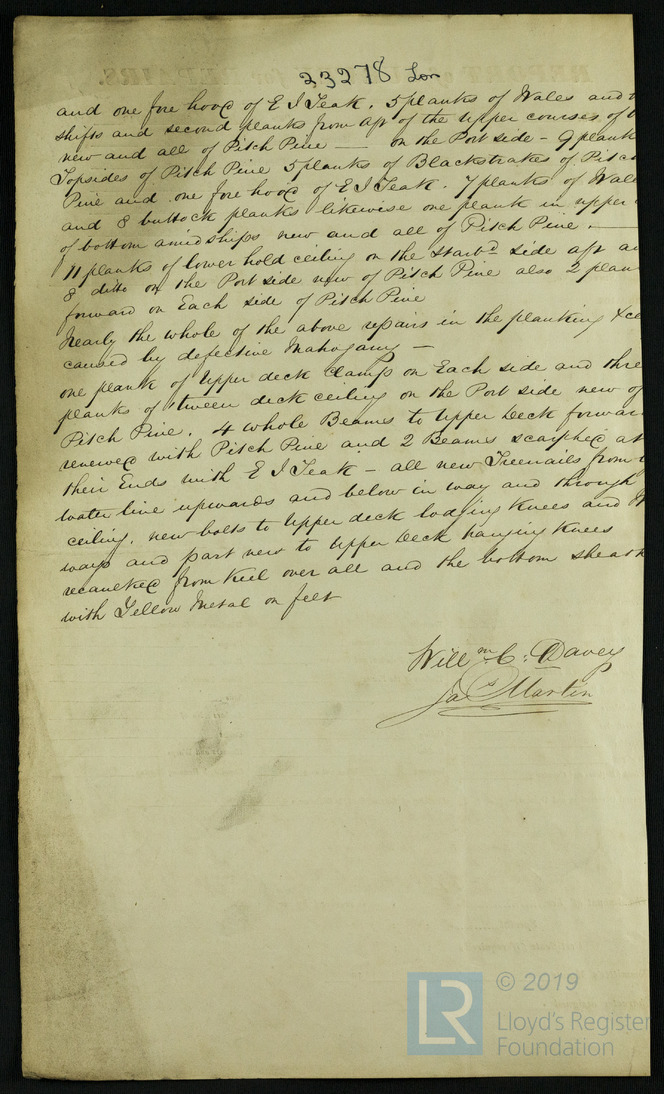 23278 Lon
and one fore hood of E I Teak. 5 planks of Wales and
shifts and second planks from aft of the upper courses of
new and all of Pitch Pine — on the Port side - 9 plank
Topsides of Pitch Pine 5 planks of Blackstrakes of Pitc
Pine and one fore hood of E I Teak. 7 planks of Wale
and 8 buttock planks likewise one plank in upper
of bottom amidships new and all of Pitch Pine. —
11 planks of lower hold ceiling on the starbd side aft an
8 ditto on the Port side new of Pitch Pine also 2 plan
forward on Each side of Pitch Pine
Nearly the whole of the above repairs in the planking &c
caused by defective Mahogany —
one plank of Upper deck Clamps on Each side and thre
planks of tween deck ceiling on the Port side new of
Pitch Pine. 4 whole Beams to Upper Deck forwar
renewed with Pitch Pine and 2 Beams scarphed at
their Ends with E I Teak - all new Treenails from
water line upwards and below in way and through
ceiling. new bolts to Upper deck lodging Knees and
ways and part new to Upper Deck hanging Knees
recaulked from Keel over all and the bottom sheath
with Yellow Metal on felt
Willm C. Davey
Jas Martin
© 2019
LR
Lloyd's Register
Foundation